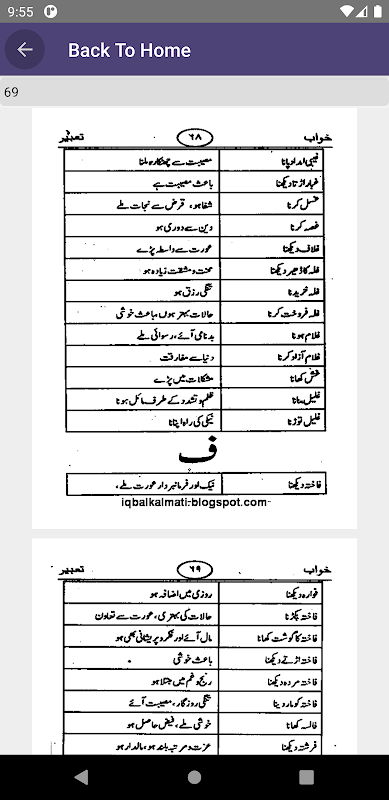 9:55
Back To Home
69
خواب ۶۸ تعبیر
غیبی امداد پانا مصیبت سے چھٹکارہ ملنا
غبار اڑتا دیکھنا باعث مصیبت ہے
غسل کرنا شفا ہو، قرض سے نجات ملے
غصہ کرنا دین سے دوری ہو
غلاف دیکھنا عورت سے واسطہ پڑے
غلہ کا ڈھیر دیکھنا محنت و مشقت زیادہ ہو
غلہ خریدنا تنگی رزق ہو
غلہ فروخت کرنا حالات بہتر ہوں، باعث خوشی
غلام ہونا بدنامی آئے، رسوائی ملے
غلام آزاد کرنا دنیا سے مفارقت
غش کھانا مشکلات میں پڑے
غلیل بنانا ظلم و تشدد کے طرف مائل ہونا
غلیل توڑنا نیکی کی راہ اپنانا
ف
فاختہ دیکھنا نیک اور فرمانبردار عورت ملے،
iqbalkalmati.blogspot.com
خواب ۶۹ تعبیر
فوارہ دیکھنا روزی میں اضافہ ہو
فاختہ پکڑنا حالات کی بہتری، عورت سے تعاون
فاختہ کا گوشت کھانا مال آئے اور فکر و پریشانی بھی ہو
فاختہ اڑتے دیکھنا باعث خوشی
فاختہ مردہ دیکھنا رنج و غم میں مبتلا ہو
فاختہ کو مار دینا تنگی روزگار، مصیبت آئے
فالسہ کھانا خوشی ملے، فیض حاصل ہو
فرشتہ دیکھنا عزت و مرتبہ بلند ہو، مالدار ہو